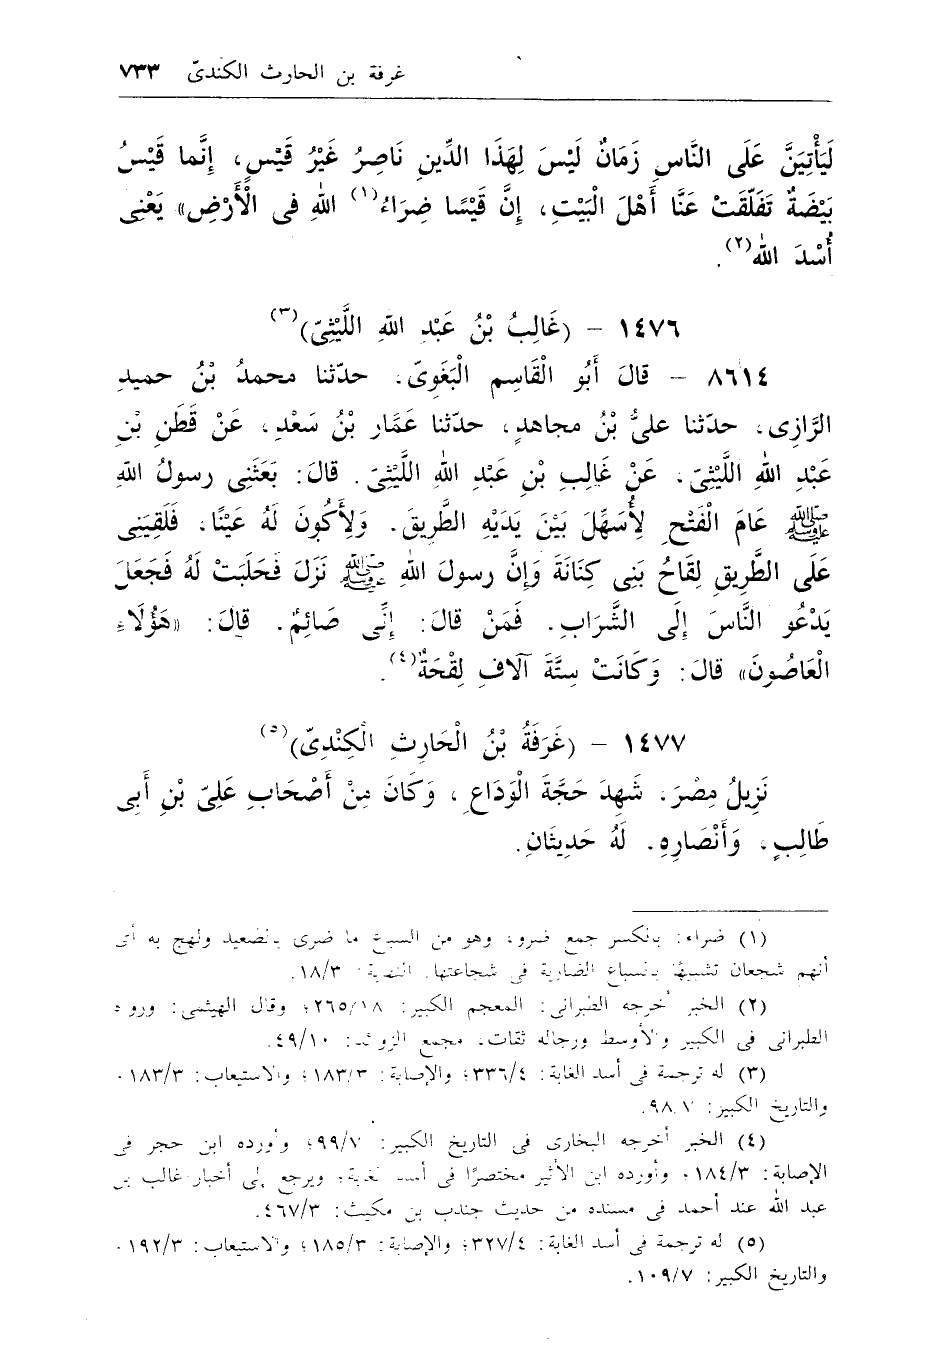 غرفة بن الحارث الكندىّ ٧٣٣
لَيَأْتِيَنَّ عَلَى النَّاسِ زَمَانٌ لَيْسَ لِهَذَا الدِّينِ نَاصِرُ غَيْرُ قَيْسٍ، إنَّما قَيْسُ
بَيْضَةٌ تَفَلّقَتْ عَنَّا أَهْلَ الْبَيْتِ، إنَّ قَيْسًا ضِرَاءُ(١) اللهِ فى الْأَرْضِ» يَعْنِى
أُسْدَ الله(٢).
١٤٧٦ – (غَالِبُ بْنُ عَبْدِ اللهِ اللَّيْثِىّ)(٣)
٨٦١٤ – قالَ أَبُو الْقَاسِمِ الْبَغَوِىّ، حدّثنا محمدُ بْنُ حميدِ
الرَّازِى، حدّثنا علىُّ بْنُ مجاهدٍ، حدّثنا عَمَّار بْنُ سَعْدٍ، عَنْ قَطَنِ بْنِ
عَبْدِ اللهِ اللَّيْثِىّ، عَنْ غَالِبِ بْنِ عَبْدِ اللهِ اللَّيْثِىّ. قالَ: بَعَثَنِى رسولُ اللهِ
ﷺ عَامَ الْفَتْحِ لِأُسَهِّلَ بَيْنَ يَدَيْهِ الطَّرِيقَ. وَلِأَكُونَ لَهُ عَيْنًا، فَلَقِيَنِى
عَلَى الطَّرِيقِ لِقَاحُ بَنِى كِنَانَةَ وَإنَّ رسولَ اللهِ ﷺ نَزَلَ فَحَلَبَتْ لَهُ فَجَعَلَ
يَدْعُو النَّاسَ إلَى الشَّرَابِ. فَمَنْ قالَ: إنِّى صَائِمٌ. قالَ: «هَؤُلَاءِ
الْعَاصُونَ» قالَ: وَكَانَتْ سِتَّةَ آلَافِ لِقْحَةٌ(٤).
١٤٧٧ – (غَرَفَةُ بْنُ الْحَارِثِ الْكِنْدِىّ)(٥)
نَزِيلُ مِصْرَ. شَهِدَ حَجَّةَ الْوَدَاعِ، وَكَانَ مِنْ أَصْحَابِ عَلِىّ بْنِ أَبِى
طَالِبٍ، وَأَنْصَارِهِ. لَهُ حَدِيثَانِ.
(١) ضراء: بالكسر جمع ضرو، وهو من السبع ما ضرى بالصيد ولهج به أى
أنهم شجعان تشبيهًا بالسباع الضارية فى شجاعتها. النهاية ١٨/٣.
(٢) الخبر أخرجه الطبرانى: المعجم الكبير: ٢٦٥/١٨؛ وقال الهيثمى: ورواه
الطبرانى فى الكبير والأوسط ورجاله ثقات، مجمع الزوائد: ٤٩/١٠.
(٣) له ترجمة فى أسد الغابة: ٣٣٦/٤؛ والإصابة: ١٨٣/٣؛ والاستيعاب: ١٨٣/٣،
والتاريخ الكبير: ٩٨/٧.
(٤) الخبر أخرجه البخارى فى التاريخ الكبير: ٩٩/٧؛ وأورده ابن حجر فى
الإصابة: ١٨٤/٣، وأورده ابن الأثير مختصرًا فى أسد الغابة، ويرجع إلى أخبار غالب بن
عبد الله عند أحمد فى مسنده من حديث جندب بن مكيث: ٤٦٧/٣.
(٥) له ترجمة فى أسد الغابة: ٣٢٧/٤؛ والإصابة: ١٨٥/٣؛ والاستيعاب: ١٩٢/٣،
والتاريخ الكبير: ١٠٩/٧.